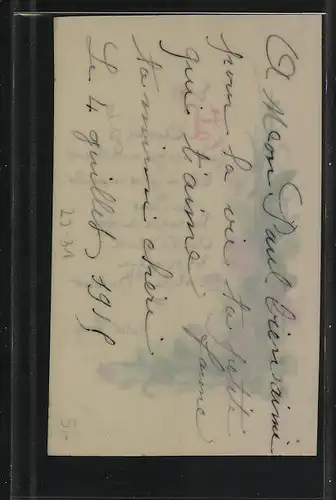 A Mon Paul bien aimé
pour la vie ta petite
qui t'aime
ta mimi chéri
Le 4 juillet 1915
23-31